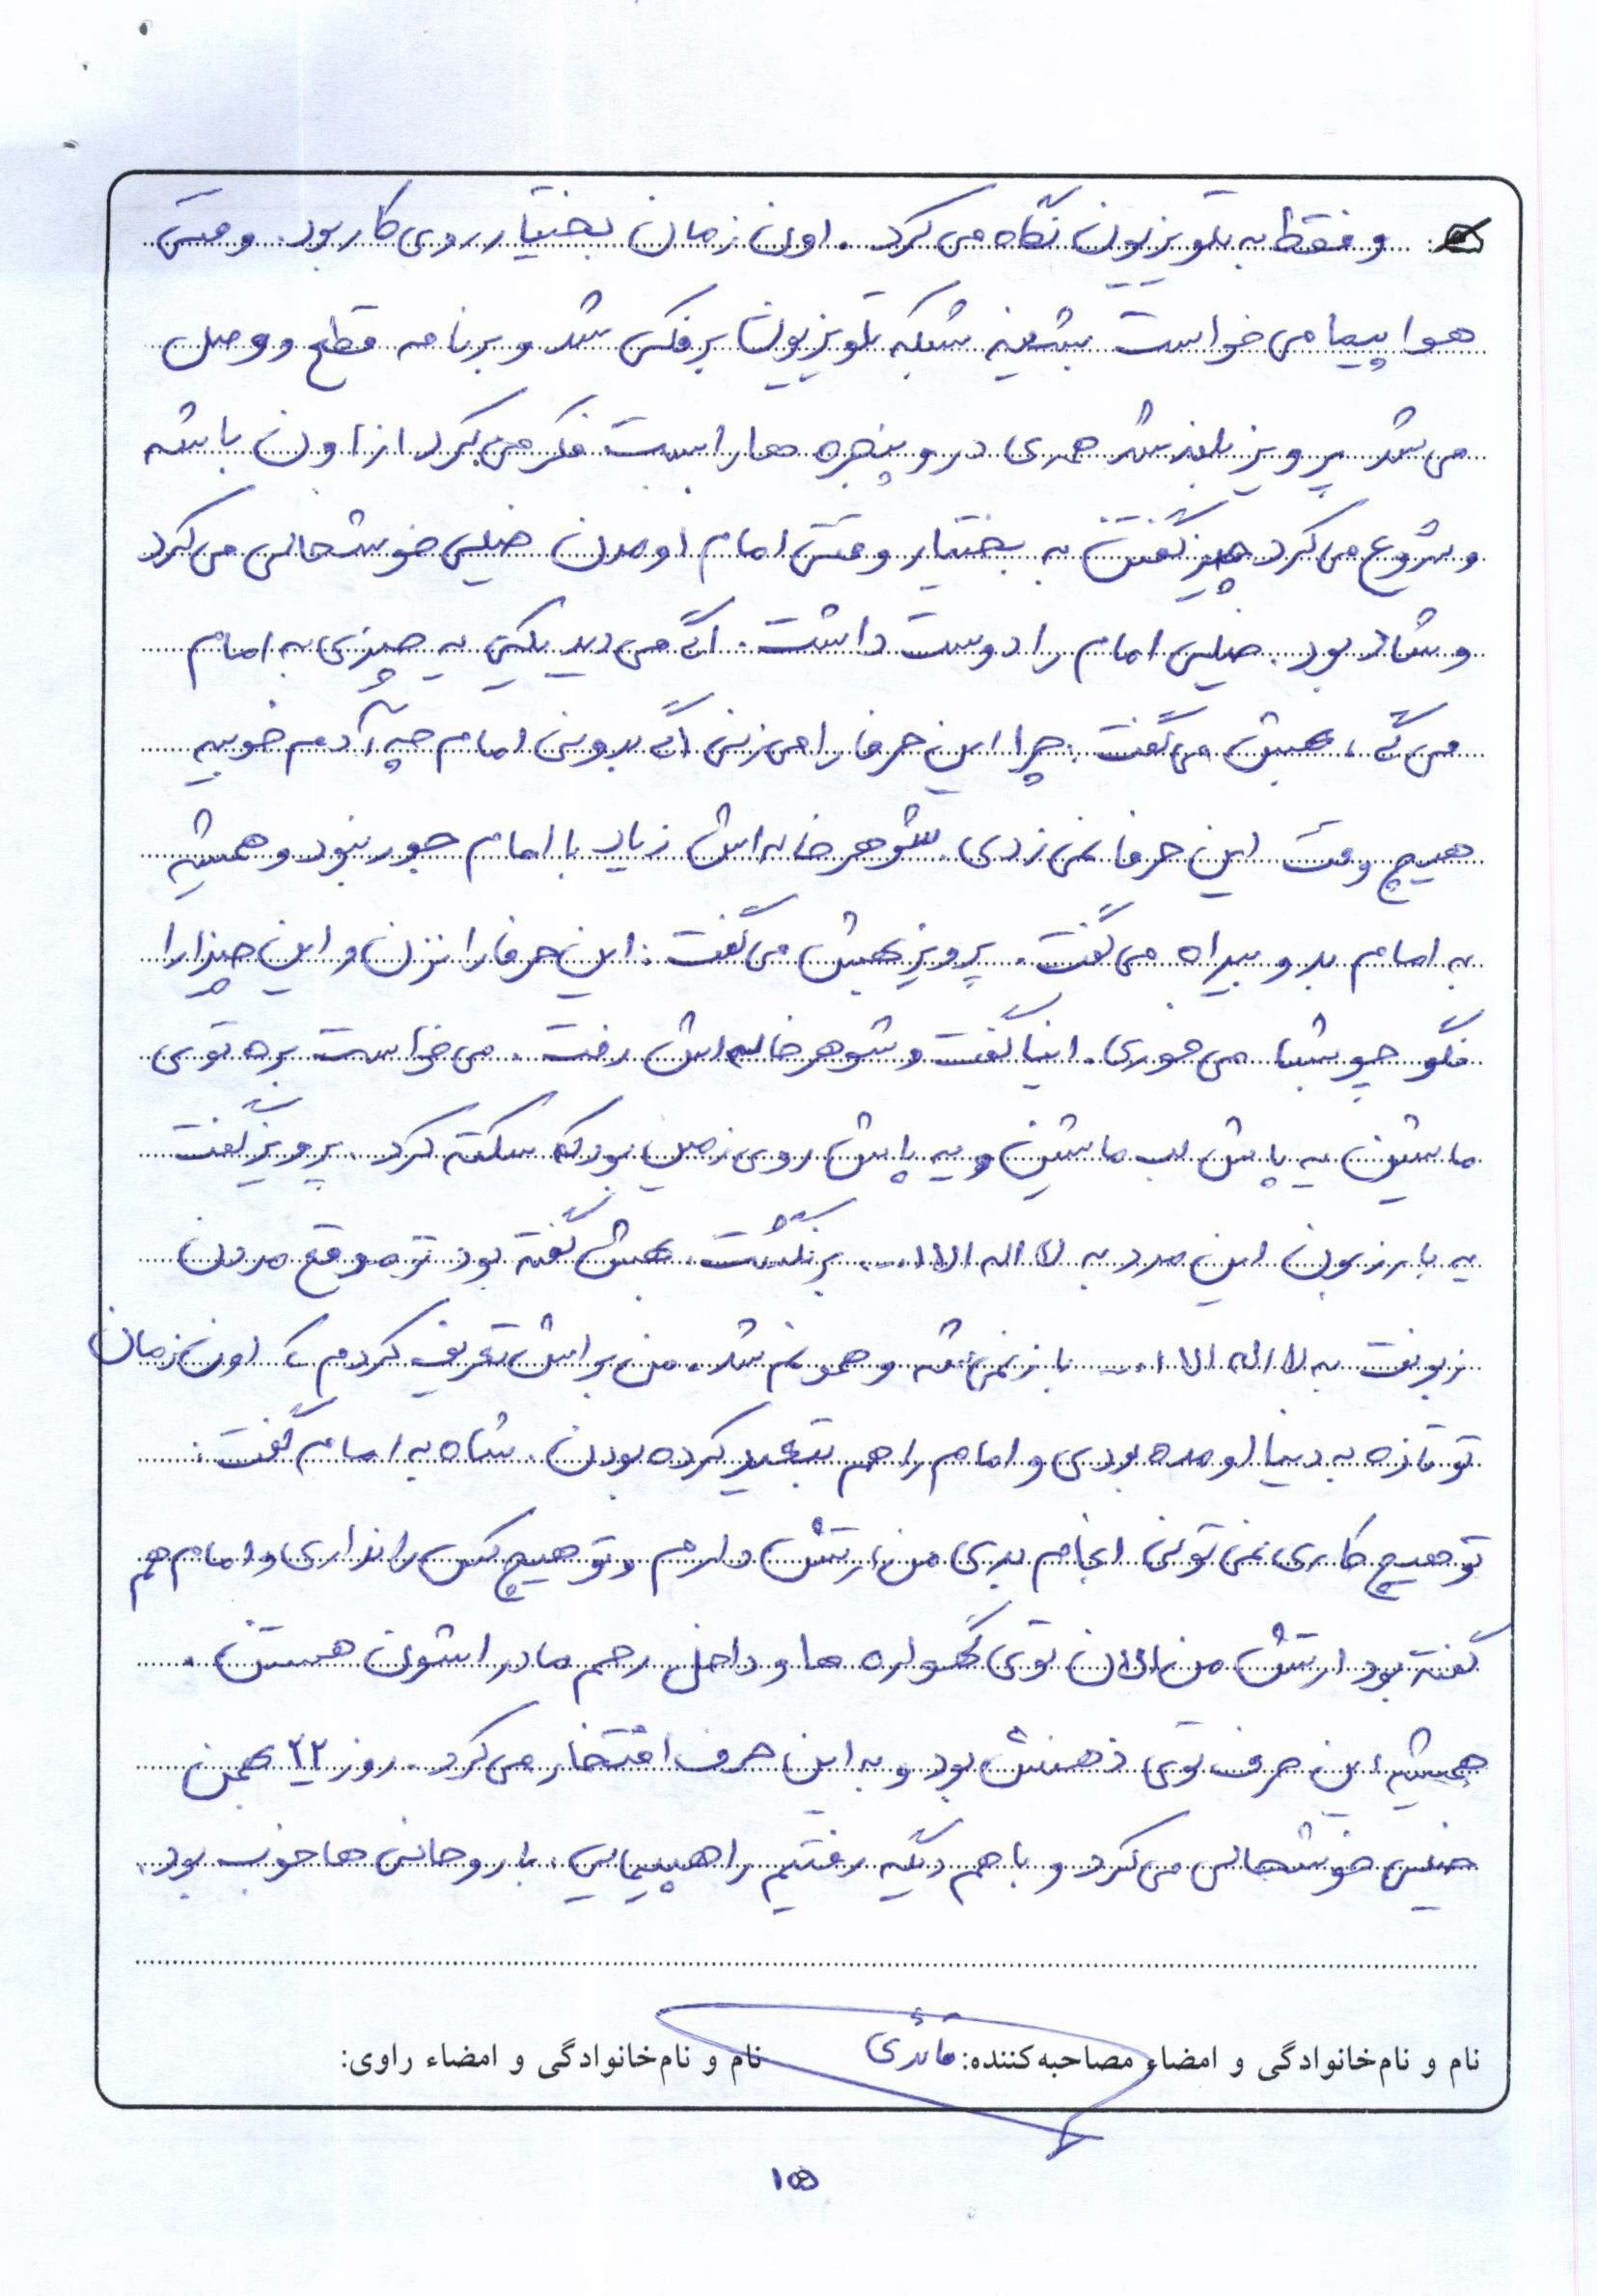 و فقط به تلویزیون نگاه می کرد. اون زمان بختیار روی کار بود. وقتی
هواپیما می خواست بشینه شبکه تلویزیون برفکی شد و برنامه قطع و وصل
می شد پرویز بلند شد همه ی در و پنجره ها را بست فکر می کرد از اون باشه
و شروع می کرد چیز گفتن به بختیار وقتی امام اومدن خیلی خوشحالی می کرد
و شاد بود. خیلی امام را دوست داشت. اگه می دید یکی یه چیزی به امام
می گه، بهش می گفت: چرا این حرفا را می زنی اگه بدونی امام چه آدم خوبیه
هیچ وقت این حرفا نمی زدی. شوهر خاله اش زیاد با امام جور نبود و همیشه
به امام بد و بیراه می گفت. پرویز بهش می گفت: این حرفا را نزن و این چیزا را
نگو چوبشا می خوری. اینا گفت و شوهر خاله اش رفت. می خواست بره توی
ماشین یه پاش لب ماشین و یه پاش روی زمین بود که سکته کرد. پرویز گفت
یه بار زبون این مرد به لا اله الا ا... برنگشت. بهش گفته بود تو موقع مردن
زبونت به لا اله الا ا... باز نمی شه و همونم شد. من براش تعریف کردم که اون زمان
تو تازه به دنیا اومده بودی و امام را هم تبعید کرده بودن. شاه به امام گفت:
تو هیچ کاری نمی تونی انجام بدی من ارتش دارم و تو هیچ کس را نداری و امام هم
گفته بود ارتش من الان توی گهواره ها و داخل رحم مادراشون هستن.
همیشه این حرف توی ذهنش بود و به این حرف افتخار می کرد. روز ۲۲ بهمن
خیلی خوشحالی می کرد و با هم دیگه رفتیم راهپیمایی. با روحانی ها خوب بود.
نام و نام‌خانوادگی و امضاء مصاحبه‌کننده: نام و نام‌خانوادگی و امضاء راوی: